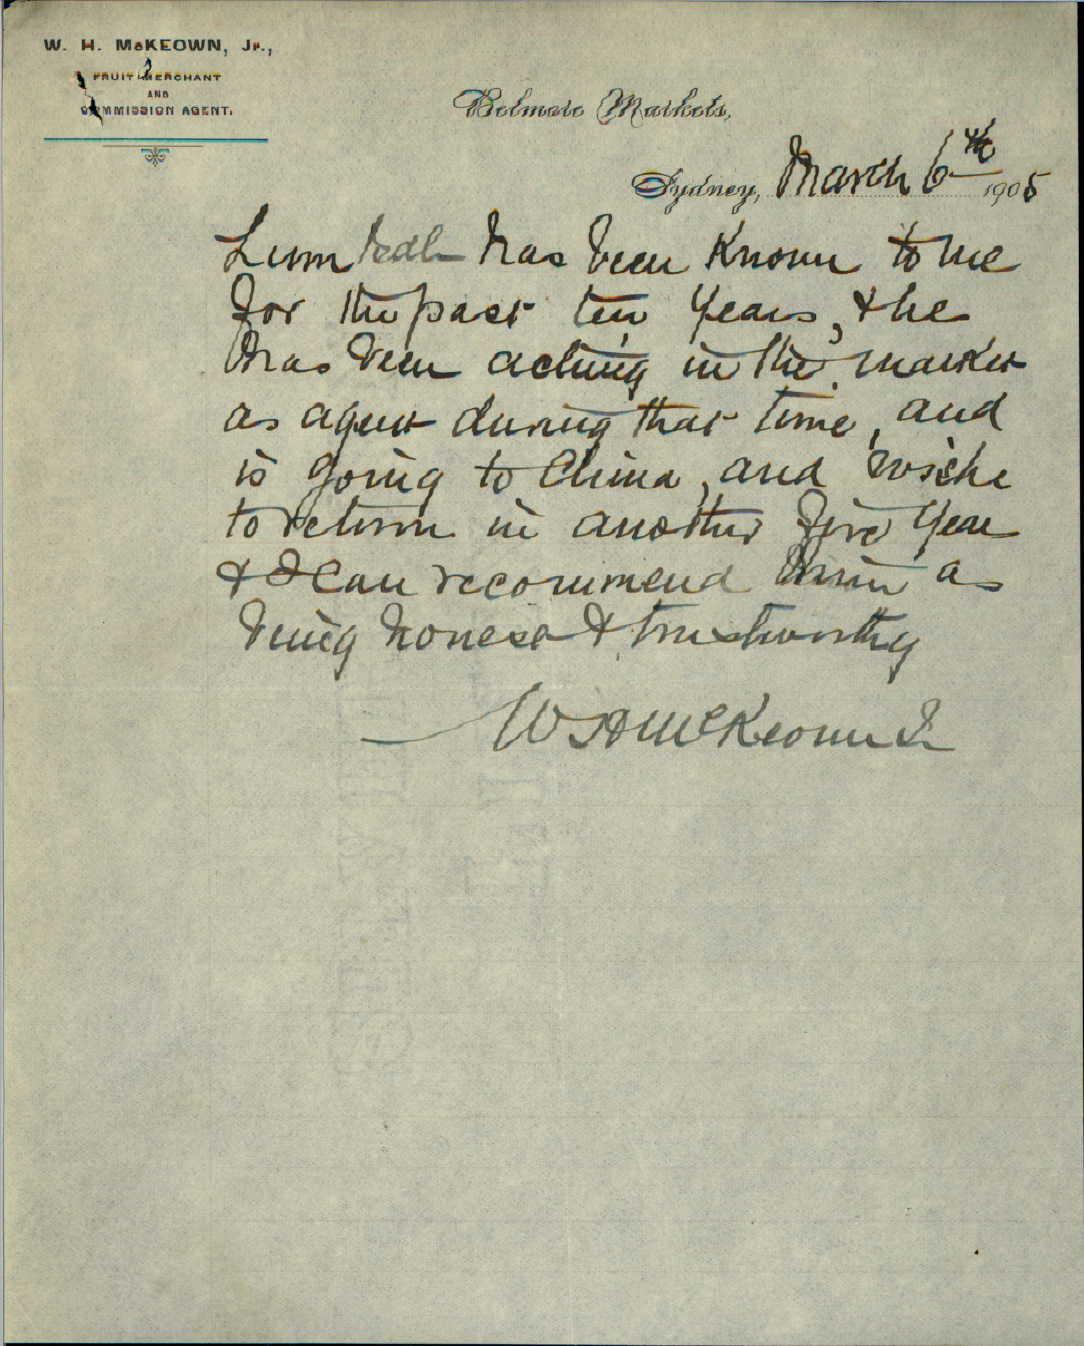 W. H. McKEOWN, Jr.,
FRUIT MERCHANT
AND
COMMISSION AGENT.
Belmore Markets,
Sydney, March 6th 1905
Lum has been Known to me
for the past ten Years, & he
has been acting in the market
as agent during that time, and
is going to China, and wishe
to return in another five Year
& I Can recommend him as
being honest & trustworthy
W H McKeown Jr